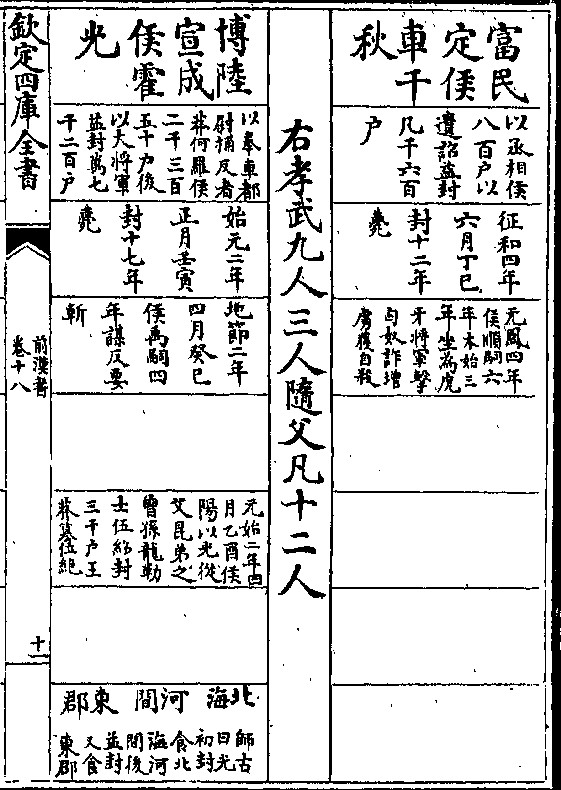 富民
定侯
車千
秋
以丞相侯
八百戶以
遺詔益封
凡千六百
戶
征和四年
六月丁巳
封十二年
薨
元鳳四年
侯順嗣六
年本始三
年坐為虎
牙將軍擊
匈奴詐增
虜獲自殺
右孝武九人三人隨父凡十二人
博陸
宣成
侯霍
光
以奉車都
尉捕反者
莽何羅侯
二千三百
五十戶後
以大將軍
益封萬七
千二百戶
始元二年
正月壬寅
封十七年
薨
地節二年
四月癸巳
侯禹嗣四
年謀反要
斬
元始二年四
月乙酉侯
陽以光從
父昆弟之
曾孫龍勒
士伍紹封
三千戶王
莽篡位絕
北海 河間 東郡
師古
曰光
初封
食北
海河
間後
益封
又食
東郡
欽定四庫全書
前漢書
卷十八
十一